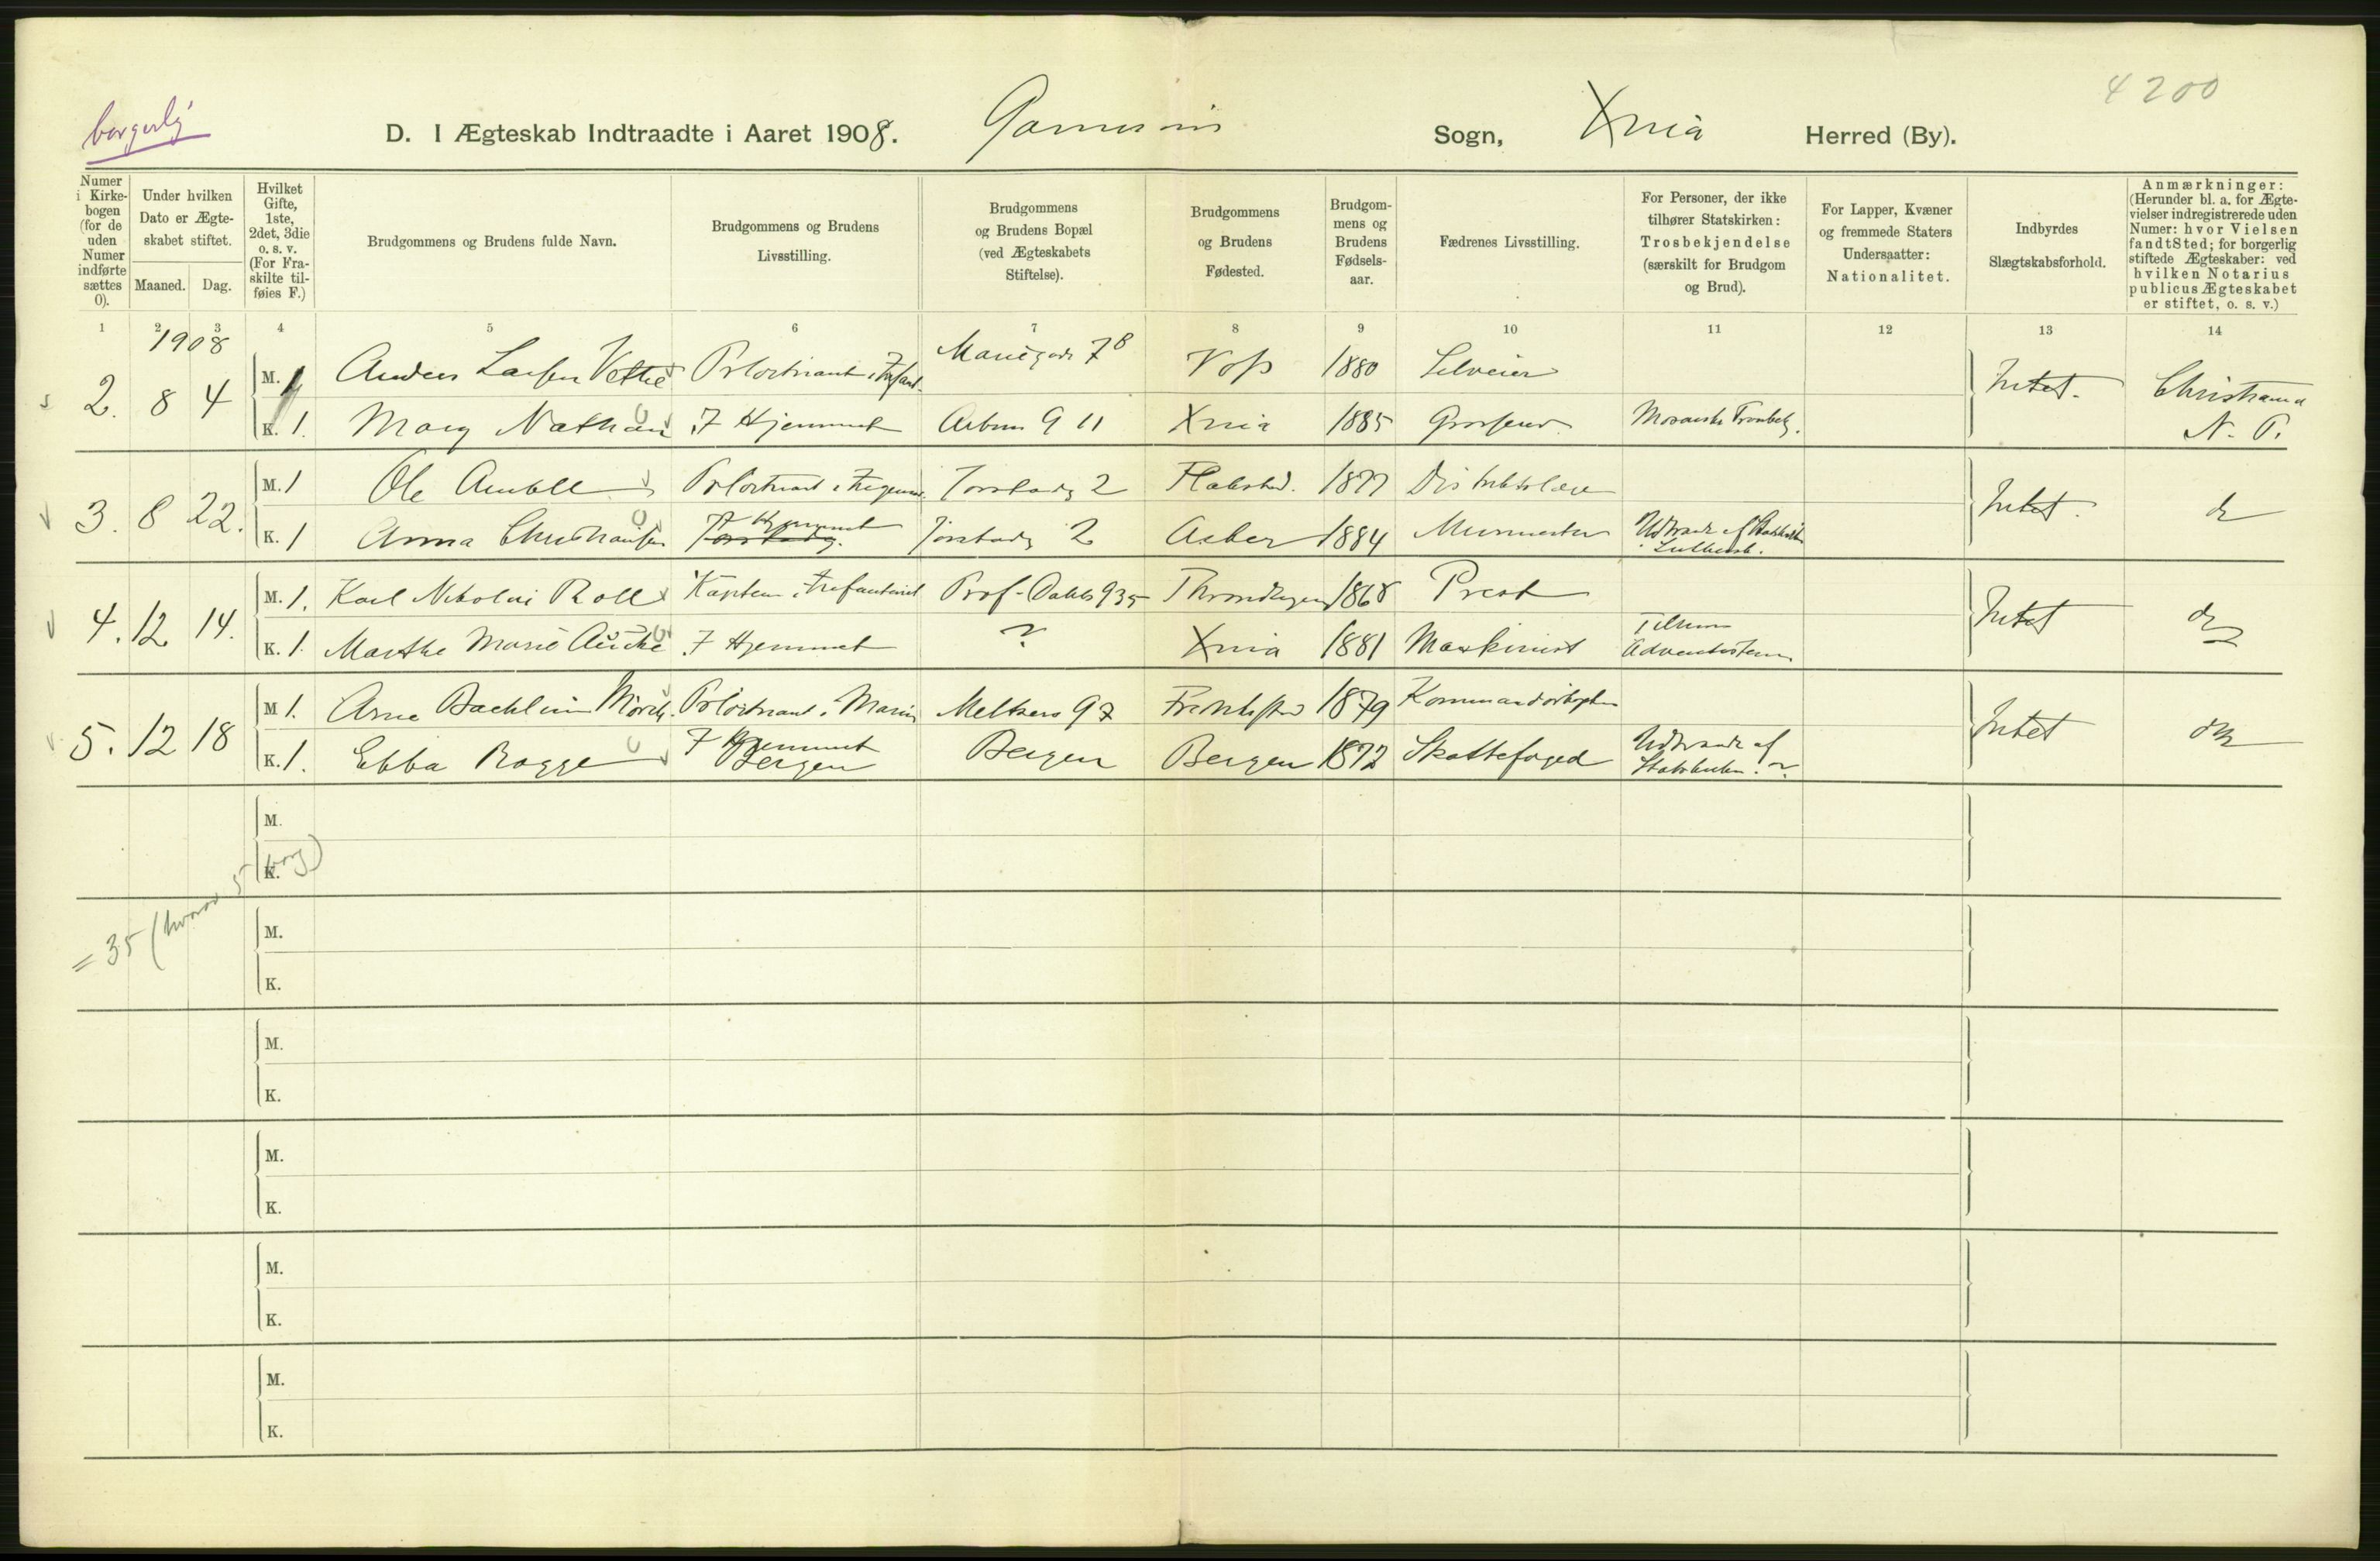 4200
borgerlig
D. I Ægteskab Indtraadte i Aaret 1908. Garnisons Sogn, Xnia Herred (By).
Numer i Kirkebogen (for de uden Numer indførte sættes 0).
Under hvilken Dato er Ægteskabet stiftet.
Maaned. Dag.
Hvilket Gifte, 1ste, 2det, 3die o. s. v. (For Fraskilte tilføies F.)
Brudgommens og Brudens fulde Navn.
Brudgommens og Brudens Livsstilling.
Brudgommens og Brudens Bopæl (ved Ægteskabets Stiftelse).
Brudgommens og Brudens Fødested.
Brudgommens og Brudens Fødselsaar.
Fædrenes Livsstilling.
For Personer, der ikke tilhører Statskirken: Trosbekjendelse (særskilt for Brudgom og Brud).
For Lapper, Kvæner og fremmede Staters Undersaatter: Nationalitet.
Indbyrdes Slægtskabsforhold.
Anmærkninger: (Herunder bl. a. for Ægtevielser indregistrerede uden Numer: hvor Vielsen fandt Sted; for borgerlig stiftede Ægteskaber: ved hvilken Notarius publicus Ægteskabet er stiftet, o. s. v.)
1 2 3 4 5 6 7 8 9 10 11 12 13 14
1908
2. 8 4 M. 1 Anders Larsen Vethe Prløitnant i Infant. 7 B Voss 1880 Selveier Intet. Christiania N. P.
K. 1. Mary Nathan I Hjemmet 11 Xnia 1885 Grosserer. Mosaiske Trosbek.
3. 8 22. M. 1 Ole Prløitnant i 2 Flakstad. 1877 Distriktslæge Intet. do
K. 1 Anna Christiansen I Hjemmet 2 Asker 1884 Murmester Udtraadt af Statskirken
4. 12 14. M. 1. Karl Nikolai Roll Kaptein i Infanteriet Prof. Dahls g 35 Throndhjem 1868 Prest Intet do
K. 1. Marthe Marie I Hjemmet ? Xnia 1881 Maskinist Tilhører Adventisterne
5. 12 18 M. 1. Arne Mørch. Prløitnant i Marin Meltzers g 7 Fredrikstad 1879 Kommandørkaptein Intet do
K. 1. Ebba Rogge I Hjemmet Bergen Bergen Bergen 1872 Skattefoged Udtraadt af Statskirken. ?
M.
K.
= 35 (hvorav 5 borg)
M.
K.
M.
K.
M.
K.
M.
K.
M.
K.